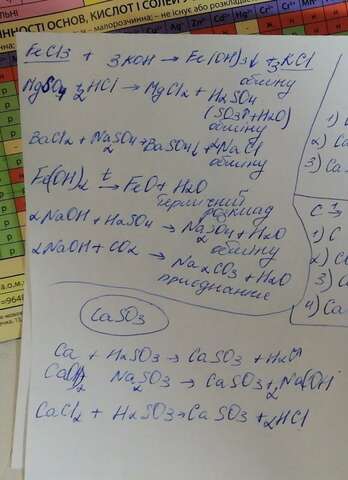 ННОСТІ ОСНОВ, КИСЛОТ І СОЛЕЙ У
— малорозчинна; – не існує або розкладає
FeCl3 + 3KOH → Fe(OH)3↓ + 3KCl
обміну
MgSO4 + 2HCl → MgCl2 + H2SO4
(SO3↑+H2O)
обміну
BaCl2 + Na2SO4 → BaSO4↓ + 2NaCl
обміну
Fe(OH)2 t→ FeO + H2O
Термічний
розклад
2NaOH + H2SO4 → Na2SO4 + H2O
обміну
2NaOH + CO2 →
Na2CO3 + H2O
приєднання
CaSO3
Ca + H2SO3 → CaSO3 + H2↑
Ca(OH)2 Na2SO3 → CaSO3 + 2NaOH
CaCl2 + H2SO3 → CaSO3 + 2HCl
1)
2) Ca
3) Ca
C →
1) C
2)
3) Ca
4) Ca